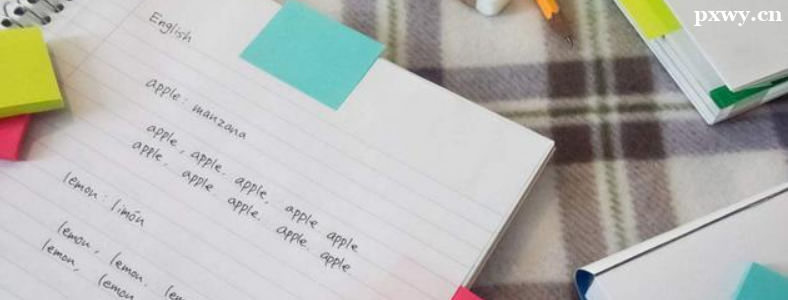 pxwy.cn
English
apple : manzana
apple, apple. apple, apple apple
apple, apple apple. apple. apple
lemon : limón
lemon, lemon.
lemon, lemon